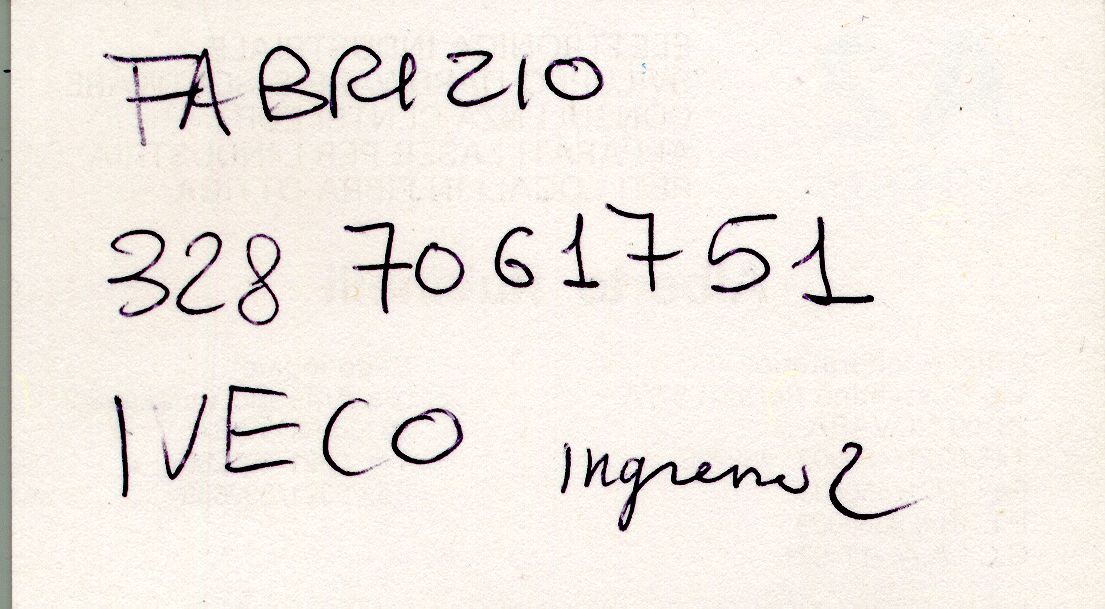 FABRIZIO
328 7061751
IVECO
Ingresso 2